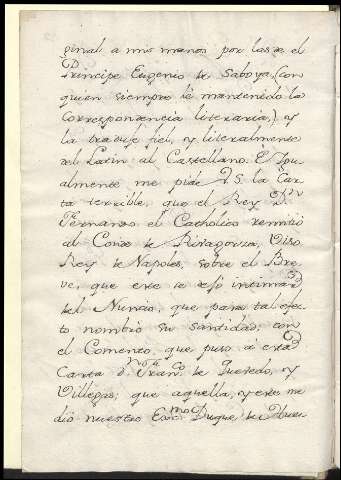 ginal a mis manos por las de el
Principe Eugenio de Saboya, (con
quien siempre hè mantenido la
correspondencia literaria,) y
la traduje fiel, y literalmente
del Latin al Castellano. E Igu-
almente me pide V.S. la Car-
ta terrible, que el Rey Dn
Fernando el Catholico remitió
al Conde de Rivagorza, Viso
Rey de Napoles, sobre el Bre-
ve, que este se dejó intimar
del Nuncio, que para tal efec-
to nombró su Santidad; con
el Comento, que puso à esta
Carta dn Francco de Quevedo, y
Villegas; que aquella, y este me
dió nuestro Excmo Duque de